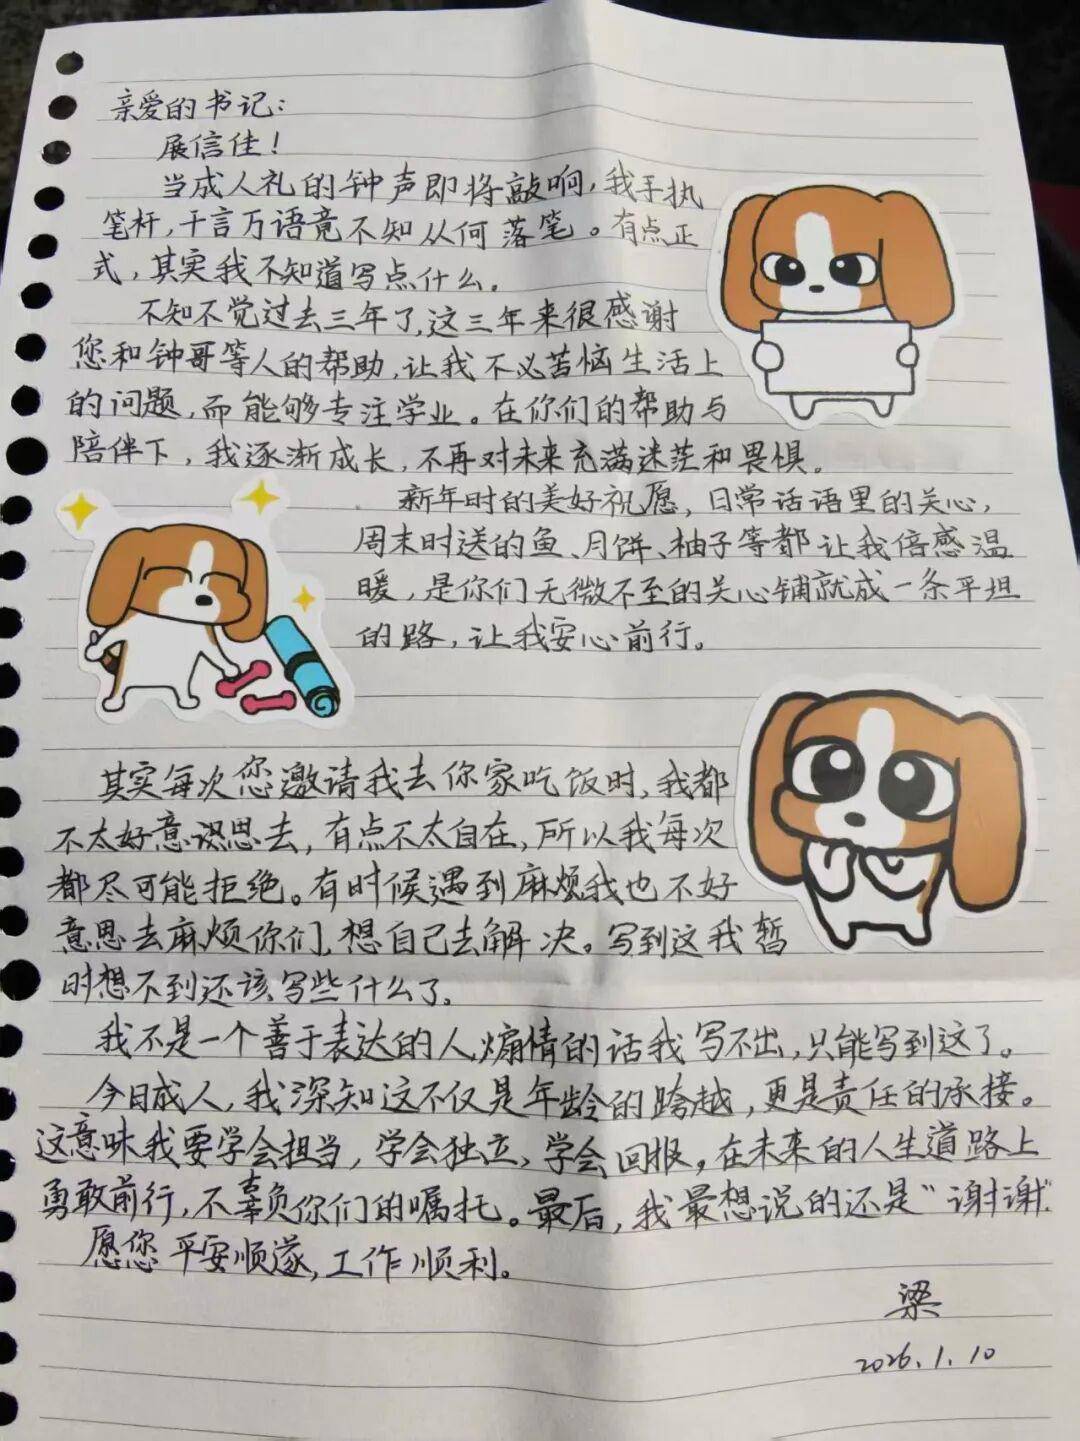 亲爱的书记：
展信佳！
当成人礼的钟声即将敲响，我手执
笔杆，千言万语竟不知从何落笔。有点正
式，其实我不知道写点什么。
不知不觉过去三年了，这三年来很感谢
您和钟哥等人的帮助，让我不必苦恼生活上
的问题，而能够专注学业。在你们的帮助与
陪伴下，我逐渐成长，不再对未来充满迷茫和畏惧。
新年时的美好祝愿，日常话语里的关心，
周末时送的鱼、月饼、柚子等都让我倍感温
暖，是你们无微不至的关心铺就成一条平坦
的路，让我安心前行。
其实每次您邀请我去你家吃饭时，我都
不太好意思去，有点不太自在，所以我每次
都尽可能拒绝。有时候遇到麻烦我也不好
意思去麻烦你们，想自己去解决。写到这我暂
时想不到还该写些什么了。
我不是一个善于表达的人，煽情的话我写不出，只能写到这了。
今日成人，我深知这不仅是年龄的跨越，更是责任的承接。
这意味我要学会担当，学会独立，学会回报，在未来的人生道路上
勇敢前行，不辜负你们的嘱托。最后，我最想说的还是“谢谢”.
愿您平安顺遂，工作顺利。
梁
2026.1.10